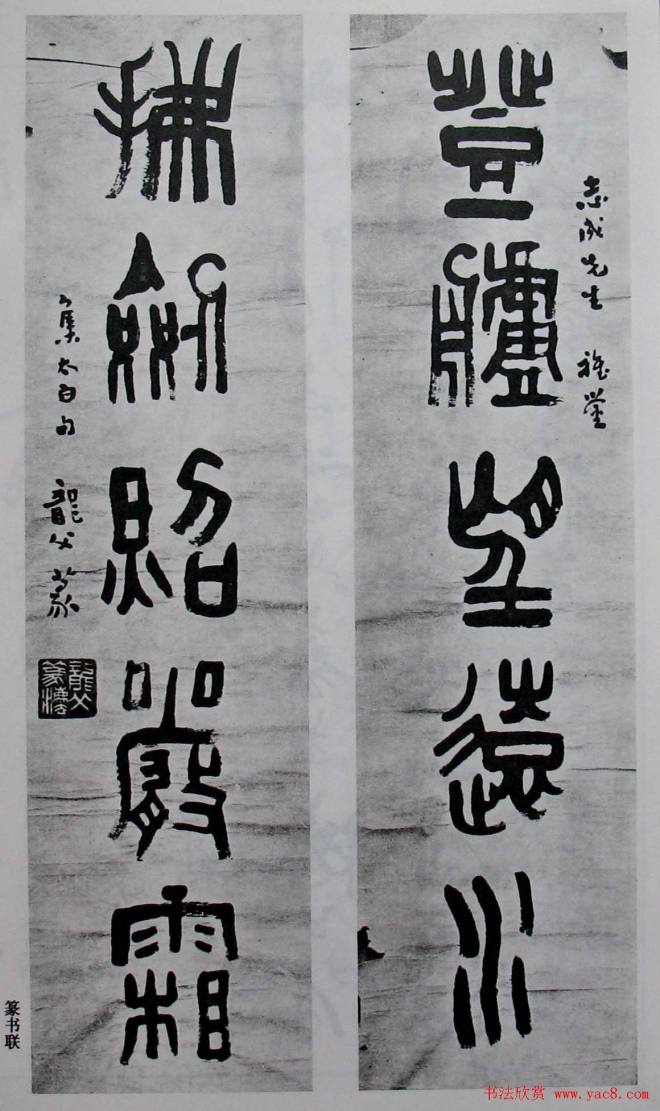 登艫望遠水
志成先生 雅鑒
拂劍照嚴霜
集太白句 龍父篆
篆书联
书法欣赏 www.yac8.com